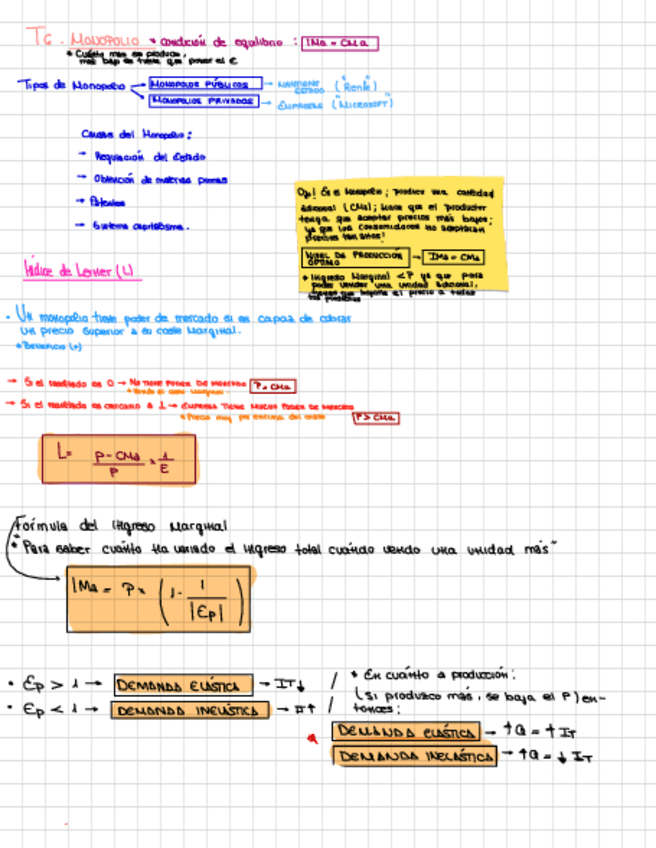 T6. MONOPOLIO * condición de equilibrio: IMa = CMa
* Cuánto más se produce,
más bajo se tiene que poner el €
Tipos de Monopolio → MONOPOLIOS PÚBLICOS → MANTIENE ESTADO ("Renfe")
MONOPOLIOS PRIVADOS → EMPRESAS ("MICROSOFT")
Causas del Monopolio:
→ Regulación del Estado
→ Obtención de materias primas
→ Patentes
→ Sistema capitalismo.
Ojo! Si es Monopolio; producir una cantidad
adicional (CMa); hace que el productor
tenga que aceptar precios más bajos;
ya que los consumidores no aceptarían
precios tan altos!
NIVEL DE PRODUCCIÓN ÓPTIMO → IMa = CMa
* Ingreso Marginal < P ya que para
poder vender una unidad adicional,
tienes que bajarle el precio a todos
los productos
Índice de Lerner (L)
• Un monopolio tiene poder de mercado si es capaz de cobrar
un precio superior a su coste Marginal.
* Beneficio (+)
→ Si el resultado es 0 → NO TIENE PODER DE MERCADO P = CMa
→ Si el resultado es cercano a 1 → EMPRESA TIENE MUCHO PODER DE MERCADO
* Precio muy por encima del coste P > CMa
L = P - CMa / P × 1 / E
Fórmula del Ingreso Marginal
"Para saber cuánto ha variado el ingreso total cuándo vendo una unidad más"
IMa = P × (1 - 1 / |Ep|)
• Ep > 1 → DEMANDA ELÁSTICA → IT↓
• Ep < 1 → DEMANDA INELÁSTICA → IT↑
* En cuánto a producción:
(si produzco más, se baja el P) en-
tonces:
DEMANDA ELÁSTICA → ↑Q = ↑IT
DEMANDA INELÁSTICA → ↑Q = ↓IT